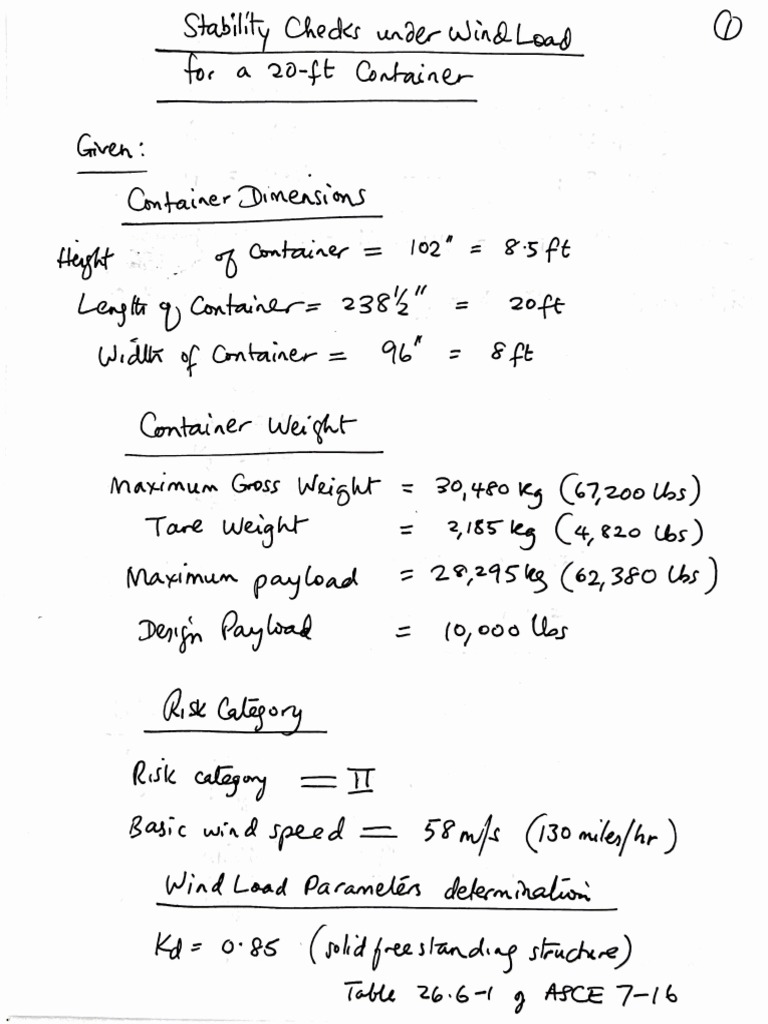 Stability Checks under Wind Load
①
for a 20-ft Container
Given:
Container Dimensions
Height of Container = 102" = 8.5 ft
Length of Container = 238½" = 20 ft
Width of Container = 96" = 8 ft
Container Weight
Maximum Gross Weight = 30,480 kg (67,200 lbs)
Tare Weight = 2,185 kg (4,820 lbs)
Maximum payload = 28,295 kg (62,380 lbs)
Design Payload = 10,000 lbs
Risk Category
Risk category = II
Basic wind speed = 58 m/s (130 miles/hr)
Wind Load Parameters determination
Kd = 0.85 (solid freestanding structure)
Table 26.6-1 of ASCE 7-16